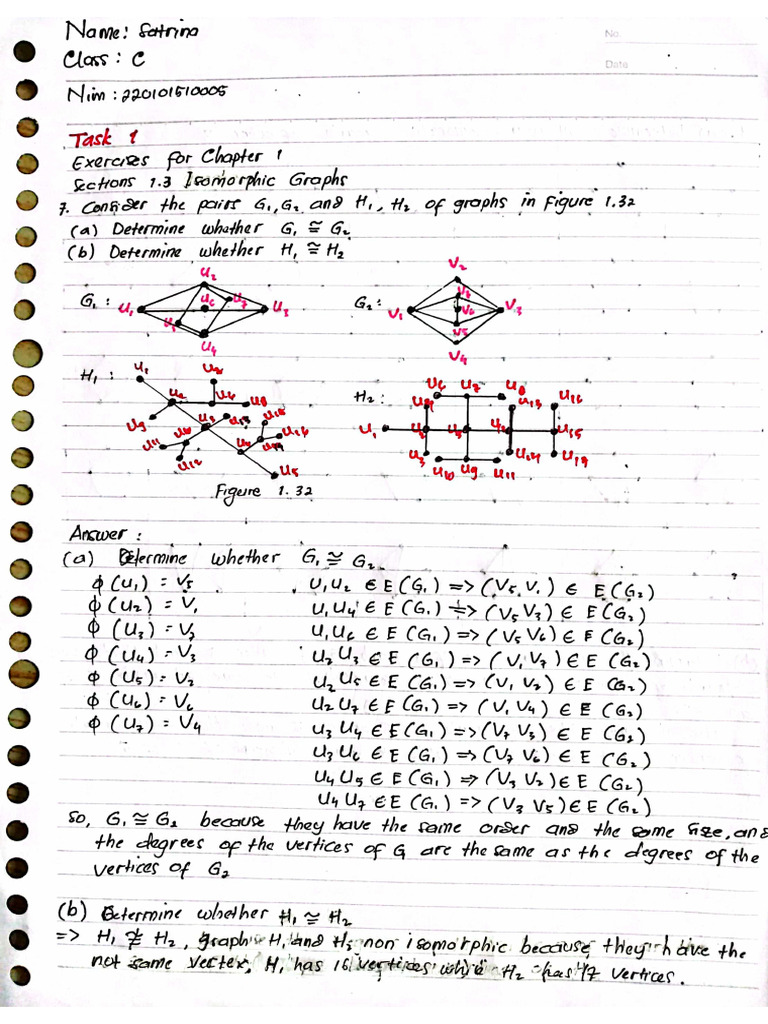 Name: Satrina
No.
Class : C
Date
Nim : 220101510005
Task 1
Exercises for Chapter 1
Sections 1.3 Isomorphic Graphs
7. Consider the pairs G₁, G₂ and H₁, H₂ of graphs in Figure 1.32
(a) Determine whather G₁ ≅ G₂
(b) Determine whether H₁ ≅ H₂
G₁ : u₁ u₂ u₃ u₄ u₆ u₇
G₂ : V₁ V₂ V₃ V₄ V₅ V₆ V₇
H₁ :
H₂ :
Figure 1.32
Answer :
(a) Determine whether G₁ ≅ G₂
ϕ (u₁) = V₅ U₁U₂ ∈ E (G₁) => (V₅ V₁) ∈ E (G₂)
ϕ (u₂) = V₁ U₁U₄ ∈ E (G₁) => (V₅ V₃) ∈ E (G₂)
ϕ (u₃) = V₇ U₁U₆ ∈ E (G₁) => (V₅ V₆) ∈ E (G₂)
ϕ (u₄) = V₃ U₂U₃ ∈ E (G₁) => (V₁ V₇) ∈ E (G₂)
ϕ (u₅) = V₂ U₂U₅ ∈ E (G₁) => (V₁ V₂) ∈ E (G₂)
ϕ (u₆) = V₆ U₂U₇ ∈ E (G₁) => (V₁ V₄) ∈ E (G₂)
ϕ (u₇) = V₄ U₃U₄ ∈ E (G₁) => (V₇ V₃) ∈ E (G₂)
U₃U₆ ∈ E (G₁) => (V₇ V₆) ∈ E (G₂)
U₄U₅ ∈ E (G₁) => (V₃ V₂) ∈ E (G₂)
U₄U₇ ∈ E (G₁) => (V₃ V₅) ∈ E (G₂)
So, G₁ ≅ G₂ because they have the same order and the same size, and
the degrees of the vertices of G are the same as the degrees of the
vertices of G₂
(b) Determine whether H₁ ≅ H₂
=> H₁ ≇ H₂, graph H₁ and H₂ non isomorphic because they have the
not same vertex, H₁ has 16 vertices while H₂ has 17 vertices.